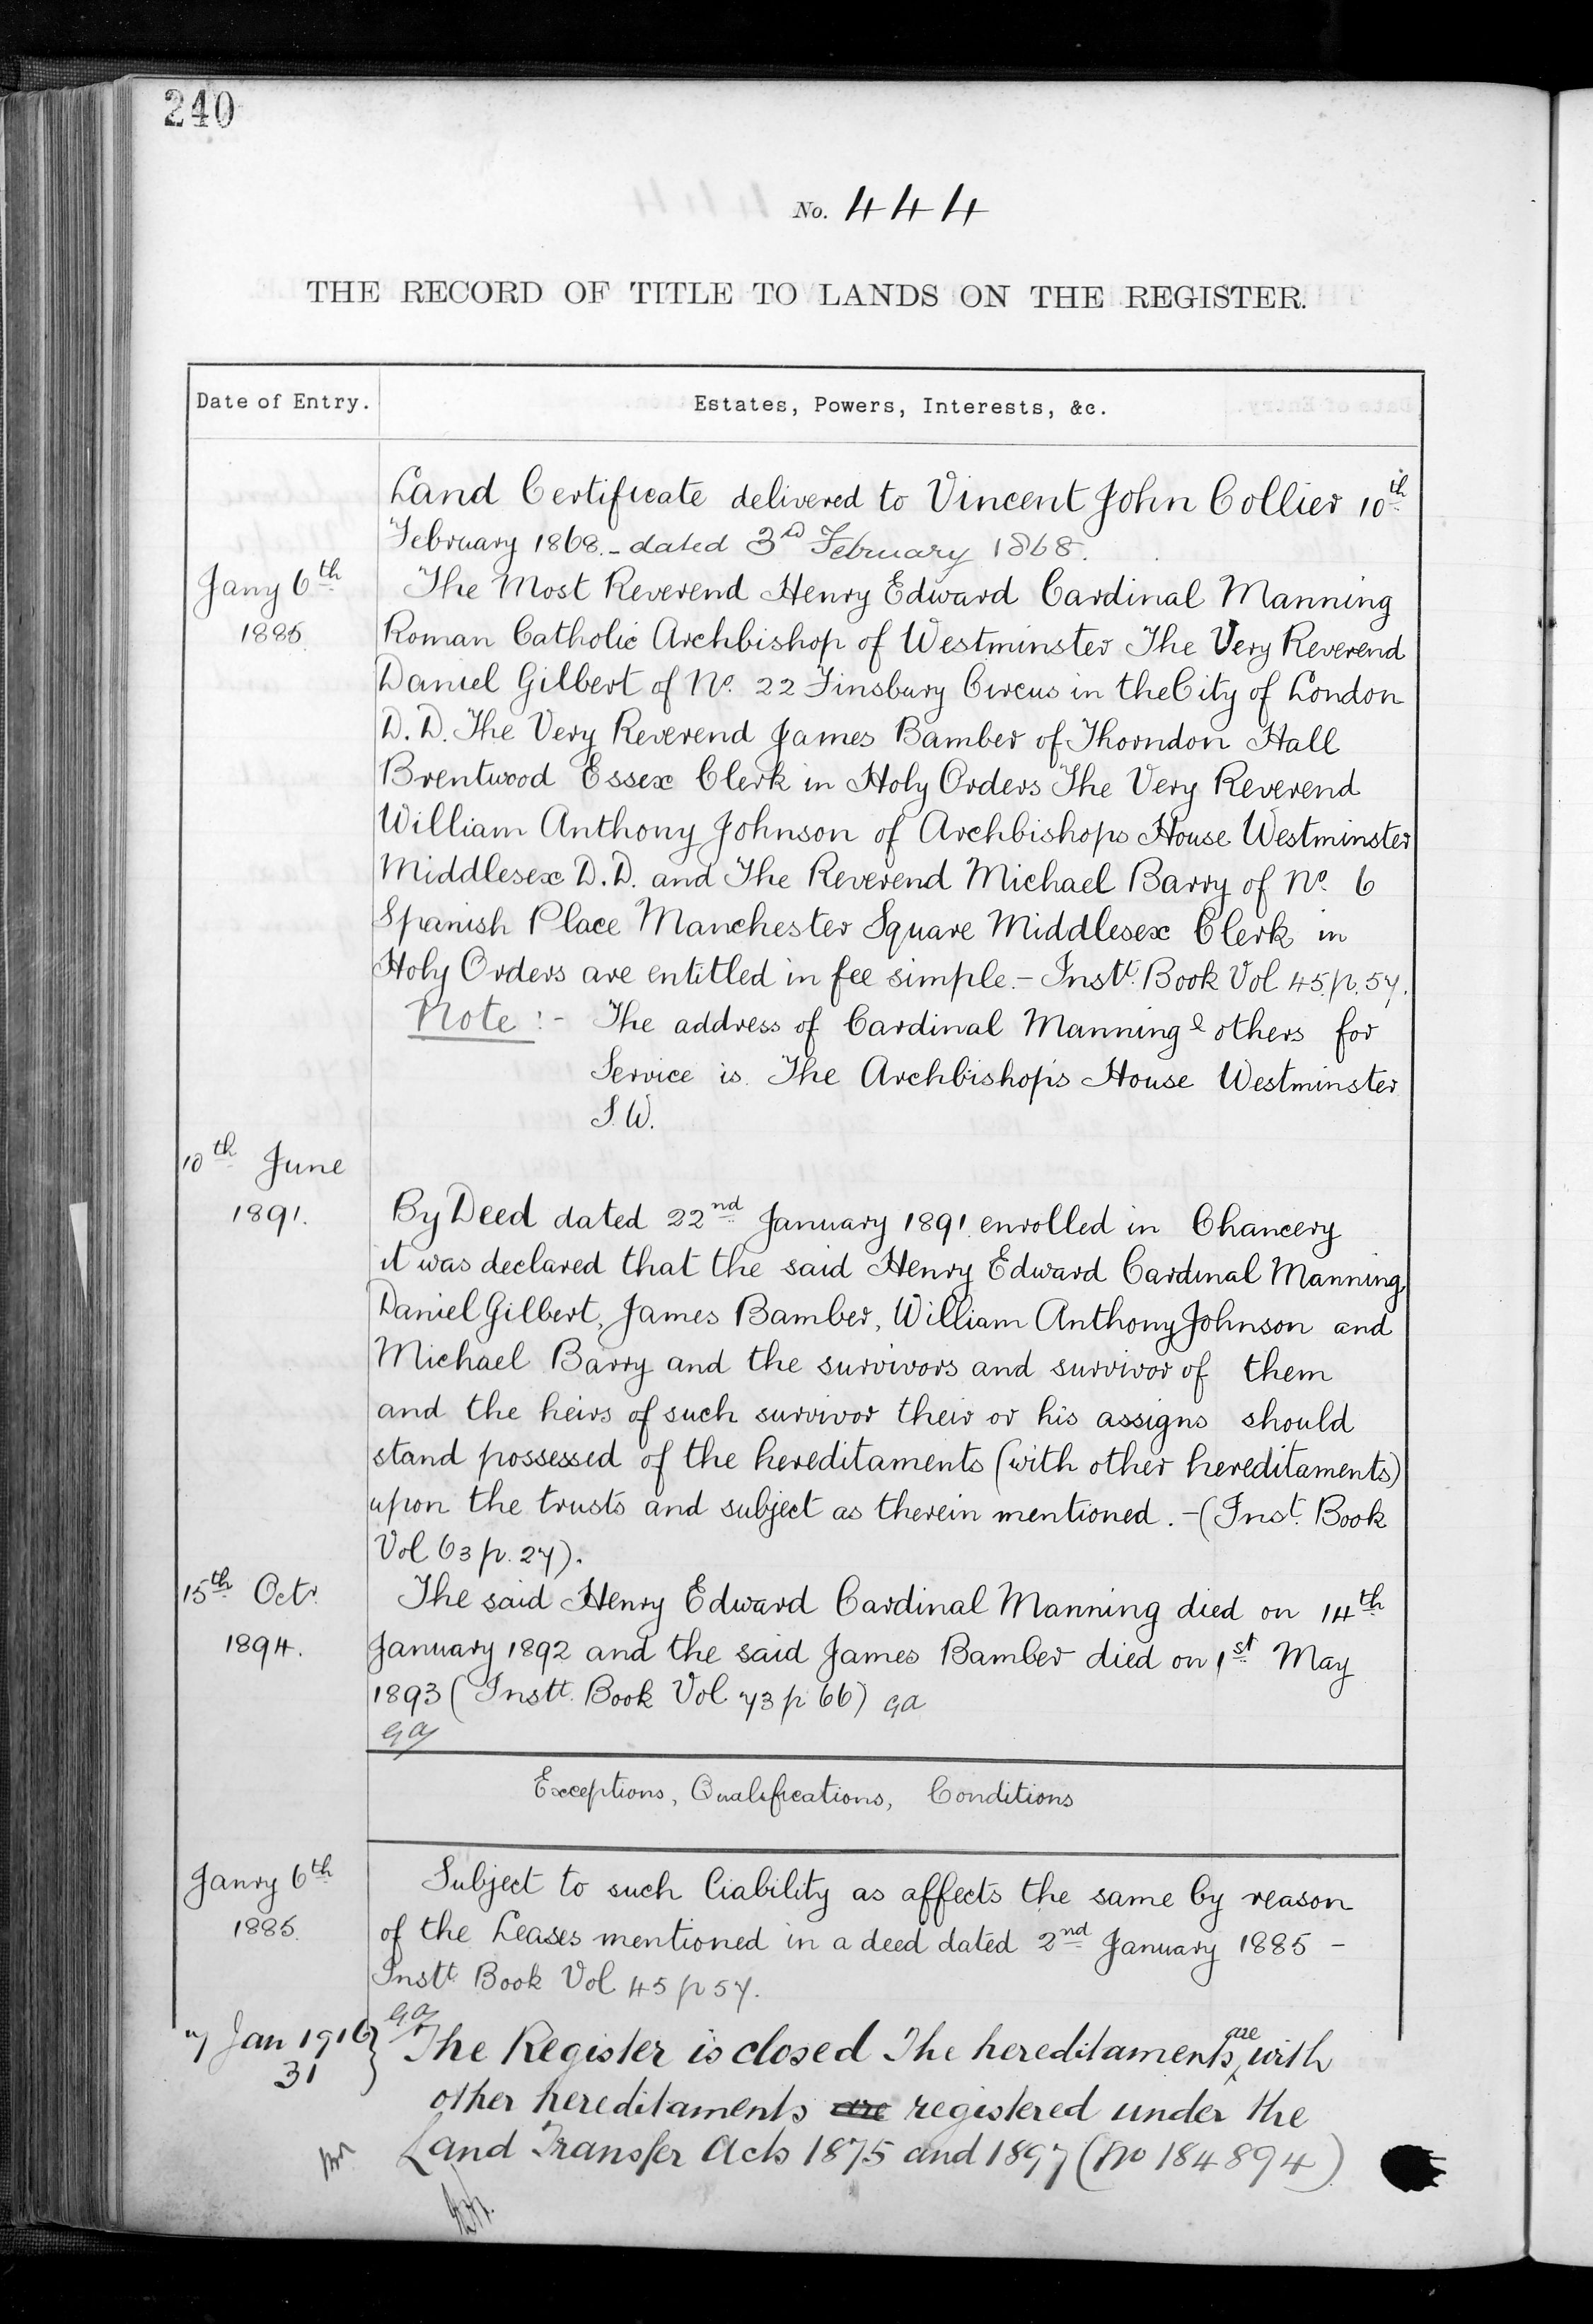 240
No. 444
THE RECORD OF TITLE TO LANDS ON THE REGISTER.
Date of Entry.
Estates, Powers, Interests, &c.
Land Certificate delivered to Vincent John Collier 10th
February 1868. - dated 3rd February 1868.
Jany 6th
1885
The Most Reverend Henry Edward Cardinal Manning
Roman Catholic Archbishop of Westminster The Very Reverend
Daniel Gilbert of No. 22 Finsbury Circus in the City of London
D. D. The Very Reverend James Bamber of Thorndon Hall
Brentwood Essex Clerk in Holy Orders The Very Reverend
William Anthony Johnson of Archbishops House Westminster
Middlesex D. D. and The Reverend Michael Barry of No. 6
Spanish Place Manchester Square Middlesex Clerk in
Holy Orders are entitled in fee simple. - Instt. Book Vol 45. p. 57.
Note :- The address of Cardinal Manning & others for
Service is The Archbishop's House Westminster
S. W.
10th June
1891.
By Deed dated 22nd January 1891 enrolled in Chancery
it was declared that the said Henry Edward Cardinal Manning,
Daniel Gilbert, James Bamber, William Anthony Johnson and
Michael Barry and the survivors and survivor of them
and the heirs of such survivor their or his assigns should
stand possessed of the hereditaments (with other hereditaments)
upon the trusts and subject as therein mentioned. - (Inst. Book
Vol 63 p. 27).
15th Octr.
1894.
The said Henry Edward Cardinal Manning died on 14th
January 1892 and the said James Bamber died on 1st May
1893 (Instt. Book Vol 73 p 66) GA
GA
Exceptions, Qualifications, Conditions
Janry 6th
1885.
Subject to such liability as affects the same by reason
of the Leases mentioned in a deed dated 2nd January 1885 -
Instt. Book Vol 45 p 57.
GA
7 Jan 1916
31
The Register is closed The hereditaments are with
other hereditaments are registered under the
Land Transfer Acts 1875 and 1897 (No 184894)